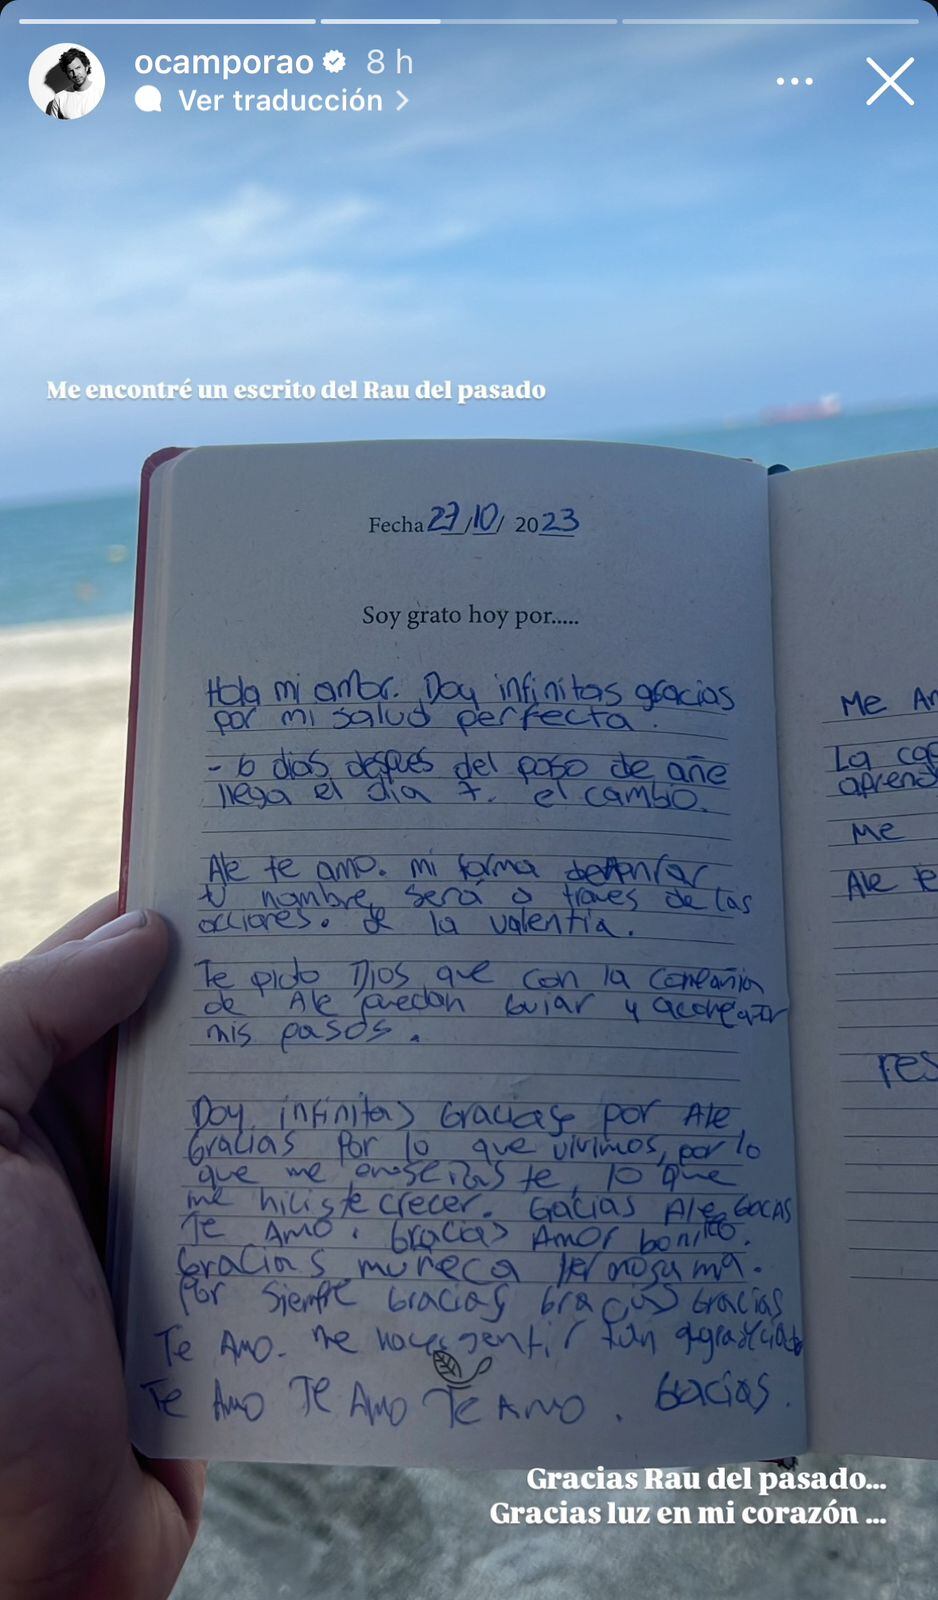 ocamporao 8 h
Ver traducción
Me encontré un escrito del Rau del pasado
Fecha 27/10/ 2023
Soy grato hoy por.....
Hola mi amor. Doy infinitas gracias
por mi salud perfecta.
- 6 dias despues del paso de
llega el día 7. el cambio.
Ale te amo. mi forma de
tu nombre será a traves de las
acciones. de la valentia.
Te pido Dios que con la compañia
de Ale puedan guiar y
mis pasos.
Doy infinitas Gracias por Ale
Gracias Por lo que vivimos, por lo
que me enseñaste, lo que
me hiciste crecer. Gacias Ale
Te Amo. Gracias Amor bonito.
Gracias muñeca hermosa ma.
Por siempre Gracias Gracias Gracias
Te Amo. me haces sentir tan
Te Amo Te Amo Te Amo. Gacias.
Me
La
Me
Ale te
Gracias Rau del pasado...
Gracias luz en mi corazón ...